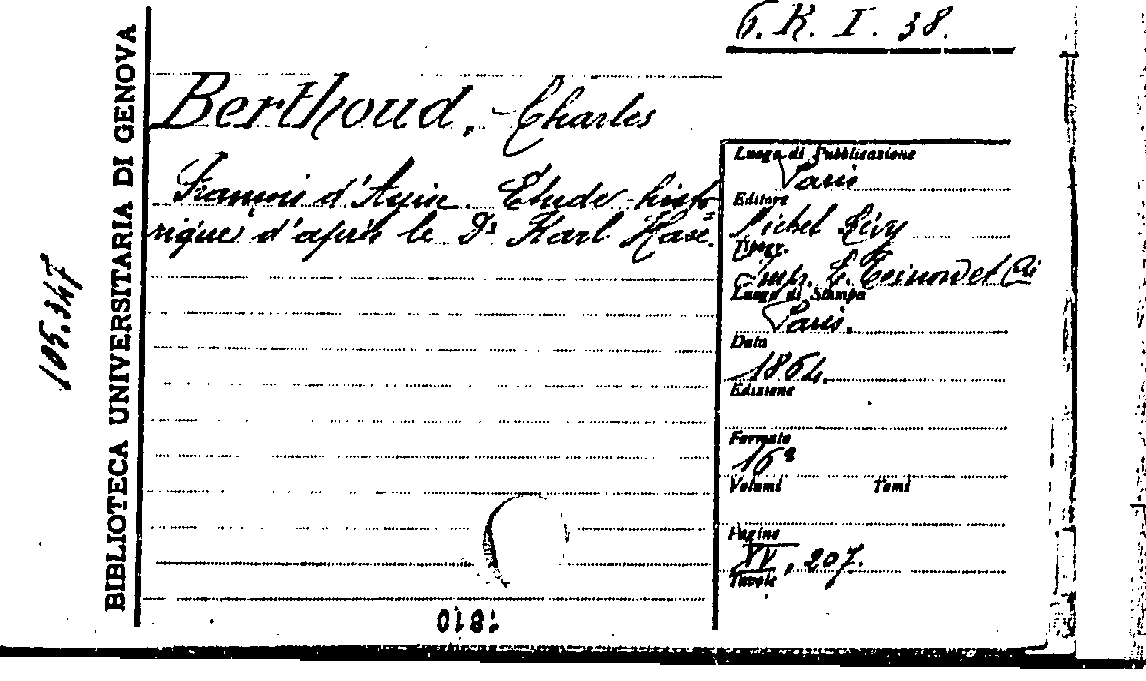 6. K. I. 38.
Berthoud, Charles
François d'Assise. Étude histo-
rique d'après le Dr Karl Hase.
Luogo di Pubblicazione
Paris
Editore
Michel Lévy
Tipogr.
Imp. E.
Luogo di Stampa
Paris.
Data
1864.
Edizione
Formato
16°
Volumi Tomi
Pagine
XV, 207.
Tavole
BIBLIOTECA UNIVERSITARIA DI GENOVA
105.347